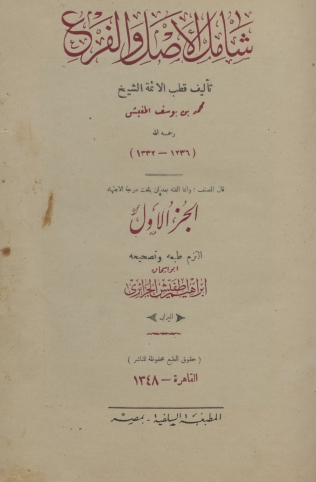 شامل الأصل والفرع
تأليف قطب الأئمة الشيخ
محمد بن يوسف اطفيش
رحمه الله
( ١٢٣٦ – ١٣٣٢ )
قال المصنف : وانا الفته بعد ان بلغت درجة الاجتهاد
الجزء الأول
التزم طبعه وتصحيحه
ابو اسحاق
ابراهيم اطفيش الجزائري
الميزابي
( حقوق الطبع محفوظة للناشر )
القاهرة – ١٣٤٨
المطبعة السلفية - بمصر